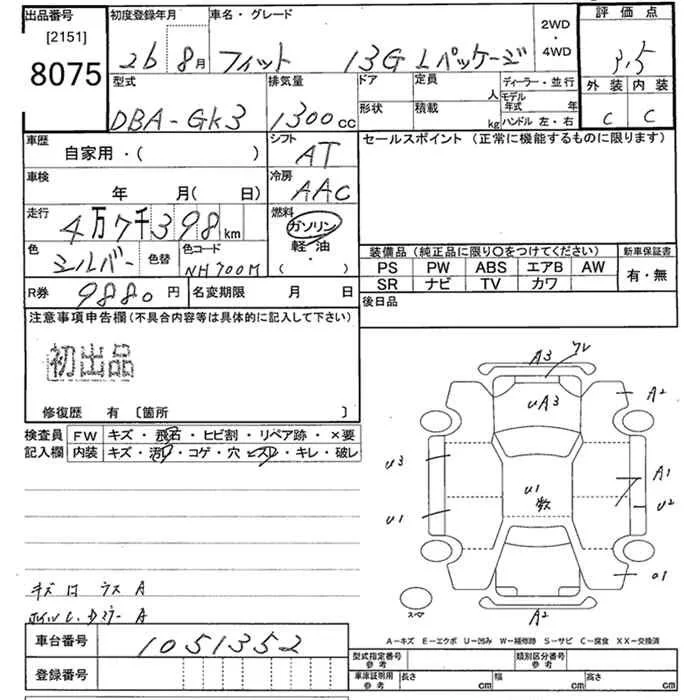 出品番号
[2151]
8075
初度登録年月
26 8月
車名・グレード
フィット 13G Lパッケージ
2WD
・
4WD
評価点
3.5
外装 内装
C C
型式
DBA-GK3
排気量
1300cc
ドア
形状
定員 人
積載 kg
ディーラー・並行
モデル年式 年
ハンドル 左・右
車歴
自家用・( )
シフト
AT
車検
年 月( 日)
冷房
AAC
走行
4万7千398km
燃料
ガソリン
軽・油
( )
色
シルバー
色替
色コード
NH700M
R券 9880円
名変期限 月 日
セールスポイント (正常に機能するものに限ります)
装備品(純正品に限り○をつけてください)
PS PW ABS エアB AW
SR ナビ TV カワ
新車保証書
有・無
後日品
注意事項申告欄(不具合内容等は具体的に記入して下さい)
初出品
修復歴 有 [箇所 ]
検査員記入欄
FW キズ・飛石・ヒビ割・リペア跡・×要
内装 キズ・汚れ・コゲ・穴・スレ・キレ・破レ
A3
UA3
A2
U3
U1
U1
A1
U2
A2
スペア
キズ ロ ラス A
A
車台番号 1051352
登録番号
A-キズ E-エクボ U-凹み W-補修跡 S-サビ C-腐食 XX-交換済
型式指定番号 参考
類別区分番号 参考
車庫証明用 参考
長さ cm 幅 cm 高さ cm